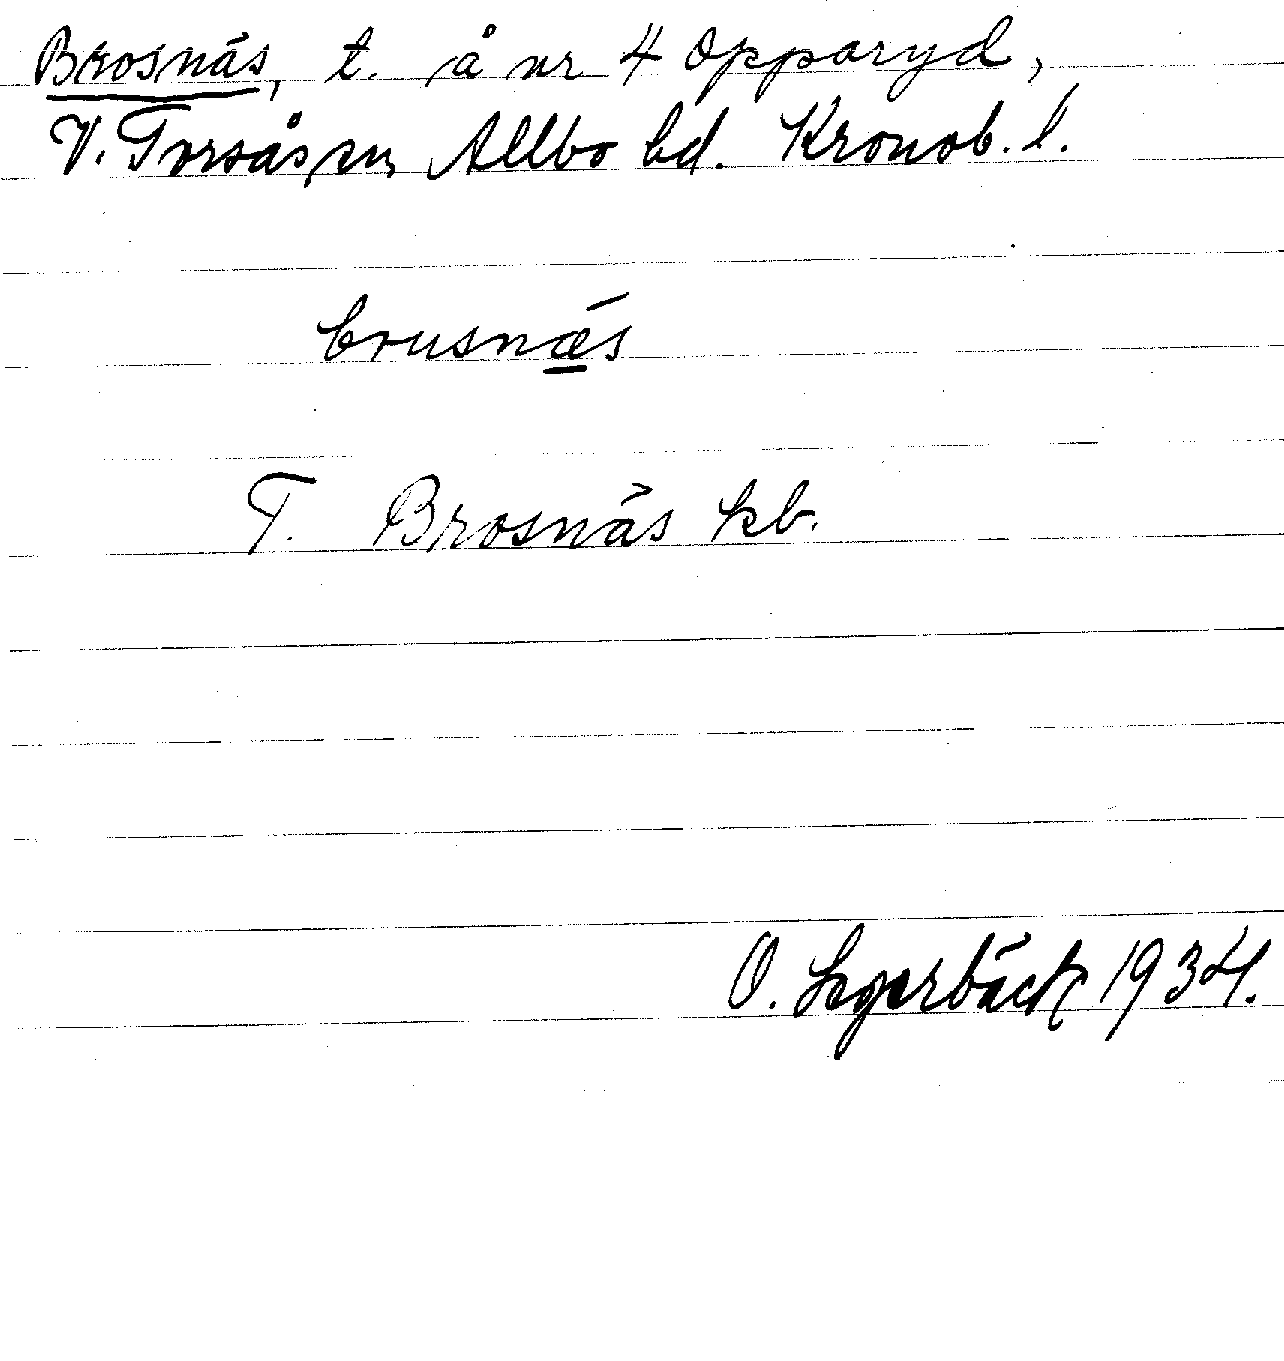 Brosnäs, t. å nr 4 Opparyd,
V. Torsås sn, Allbo hd. Kronob. l.
brusnǽ̲s
T. Brosnäs kb.
O. Legerbäck 1934.